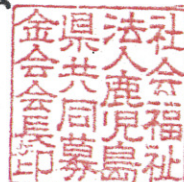 社会福祉
法人鹿児島
県共同募
金会会長印